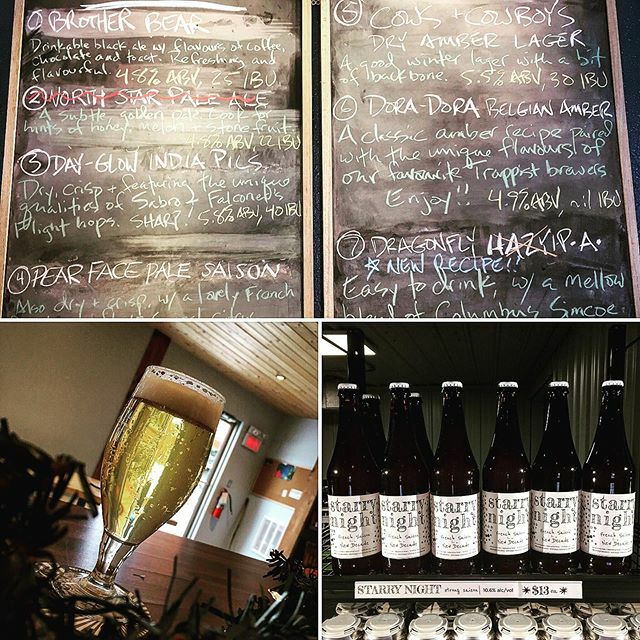 ① BROTHER BEAR
Drinkable black ale w/ flavours of coffee,
chocolate and toast. Refreshing and
flavourful. 4.8% ABV, 25 IBU
② NORTH STAR PALE ALE
A subtle, golden pale. Look for
hints of honey, melon + stonefruit.
4.8% ABV, 22 IBU
③ DAY-GLOW INDIA PILS
Dry, crisp + featuring the unique
qualities of Sabro + Falconer's
Flight hops. SHARP. 5.8% ABV, 40 IBU
④ PEAR FACE PALE SAISON
Also dry + crisp, w/ a lovely French
⑤ COWS + COWBOYS
DRY AMBER LAGER
A good winter lager with a bit
of backbone. 5.5% ABV, 30 IBU
⑥ DORA-DORA BELGIAN AMBER
A classic amber recipe paired
with the unique flavours of
our favourite Trappist brewers
Enjoy!! 4.9% ABV, nil IBU
⑦ DRAGONFLY HAZY I.P.A.
☆ NEW RECIPE!!
Easy to drink, w/ a mellow
blend of Columbus, Simcoe,
starry night french saison
starry night french saison
starry night french saison
starry night french saison
starry night french saison
starry night french saison
STARRY NIGHT strong saison | 10.6% alc/vol *$13 ea.*